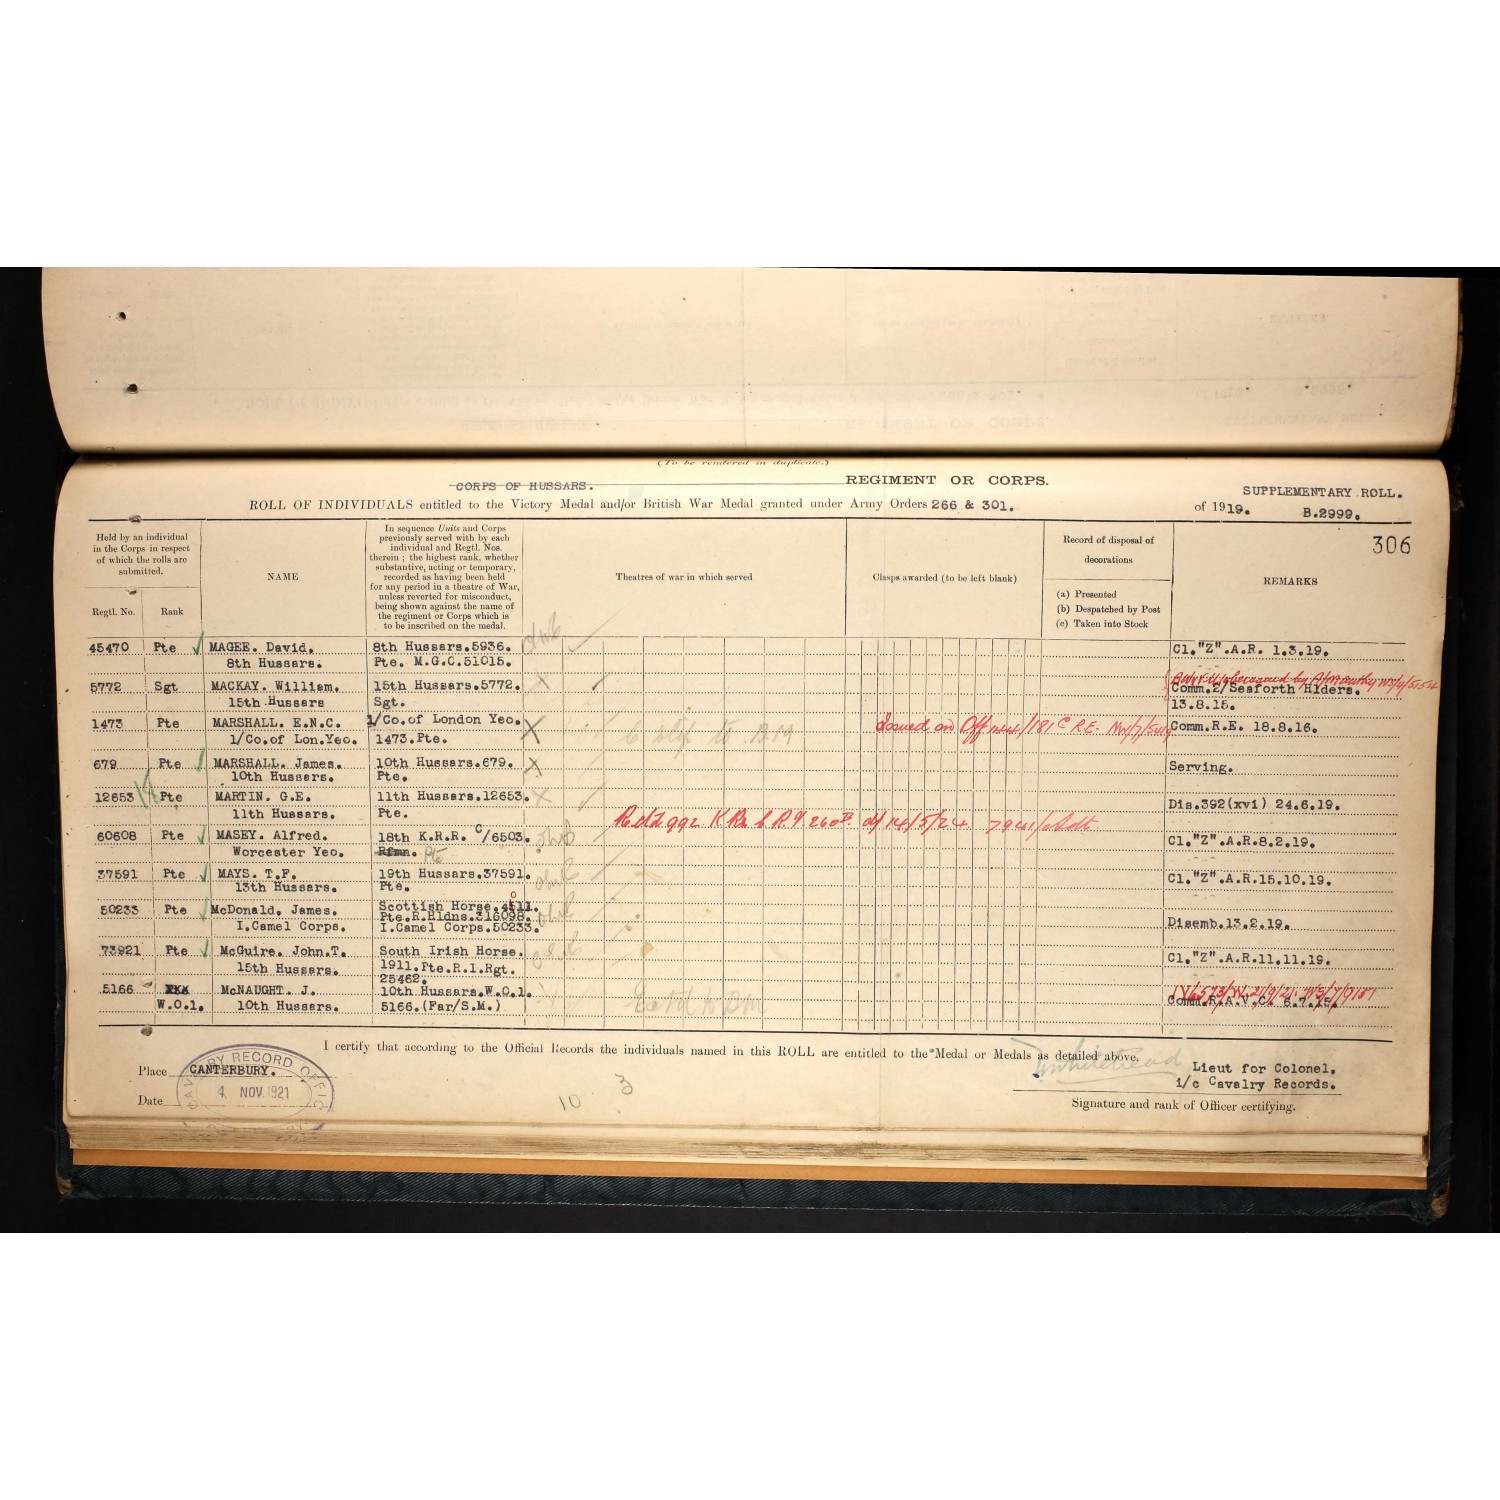 (To be rendered in duplicate.)
CORPS OF HUSSARS. REGIMENT OR CORPS.
SUPPLEMENTARY ROLL.
ROLL OF INDIVIDUALS entitled to the Victory Medal and/or British War Medal granted under Army Orders 266 & 301. of 1919. B.2999.
306
Held by an individual
in the Corps in respect
of which the rolls are
submitted.
Regtl. No. Rank
NAME
In sequence Units and Corps
previously served with by each
individual and Regtl. Nos.
therein ; the highest rank, whether
substantive, acting or temporary,
recorded as having been held
for any period in a theatre of War,
unless reverted for misconduct,
being shown against the name of
the regiment or Corps which is
to be inscribed on the medal.
Theatres of war in which served
Clasps awarded (to be left blank)
Record of disposal of
decorations
(a) Presented
(b) Despatched by Post
(c) Taken into Stock
REMARKS
45470 Pte MAGEE. David. 8th Hussars.5936. Cl."Z".A.R. 1.3.19.
8th Hussars. Pte. M.G.C.51015.
5772 Sgt MACKAY. William. 15th Hussars.5772. Comm.2/Seaforth Hlders.
15th Hussars Sgt. 13.8.15.
1473 Pte MARSHALL. E.N.C. 1/Co.of London Yeo. X Issued on Off 181 C R.E. Comm.R.E. 18.8.16.
1/Co.of Lon.Yeo. 1473.Pte. to B.M
679 Pte MARSHALL. James. 10th Hussars.679. X Serving.
10th Hussars. Pte.
12653 Pte MARTIN. G.E. 11th Hussars.12653. X Dis.392(xvi) 24.6.19.
11th Hussars. Pte. Retd. 992 K 14/5/24 7941/Adt
60608 Pte MASEY. Alfred. 18th K.R.R. C/6503. Cl."Z".A.R.8.2.19.
Worcester Yeo. Rfmn. Pte
37591 Pte MAYS. T.F. 19th Hussars.37591. Cl."Z".A.R.15.10.19.
13th Hussars. Pte.
50233 Pte McDonald. James. Scottish Horse.
Pte.R.Hldns.316098. Disemb.13.2.19.
I.Camel Corps. I.Camel Corps.50233.
73921 Pte McGuire. John.T. South Irish Horse. Cl."Z".A.R.11.11.19.
15th Hussars. 1911.Pte.R.I.Rgt.
25462.
5166 McNAUGHT. J. 10th Hussars.W.O.1. Comm.R.A.V.C. 6.7.15.
W.O.1. 10th Hussars. 5166.(Far/S.M.) to BM
I certify that according to the Official Records the individuals named in this ROLL are entitled to the Medal or Medals as detailed above.
Place CANTERBURY.
Date
CAVALRY RECORD OFFICE
4 NOV. 1921
10 3
Whitehead
Lieut for Colonel.
i/c Cavalry Records.
Signature and rank of Officer certifying.